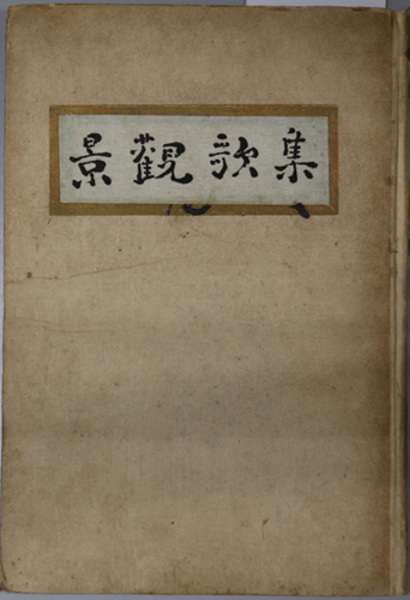 景觀歌集